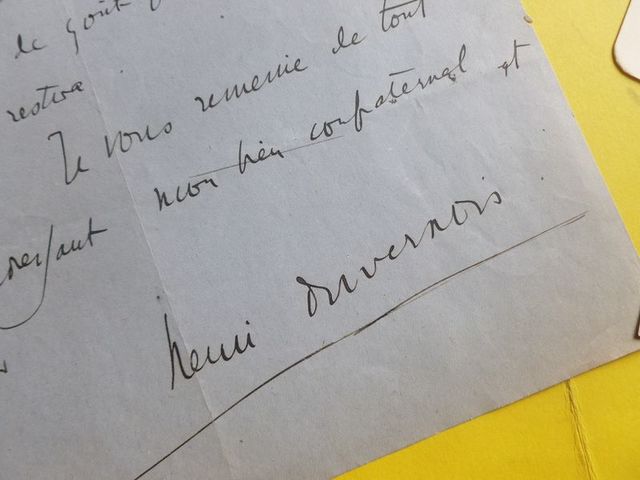 de goût
restera
Je vous remercie de tout
mon bien confraternel et
Henri Duvernois